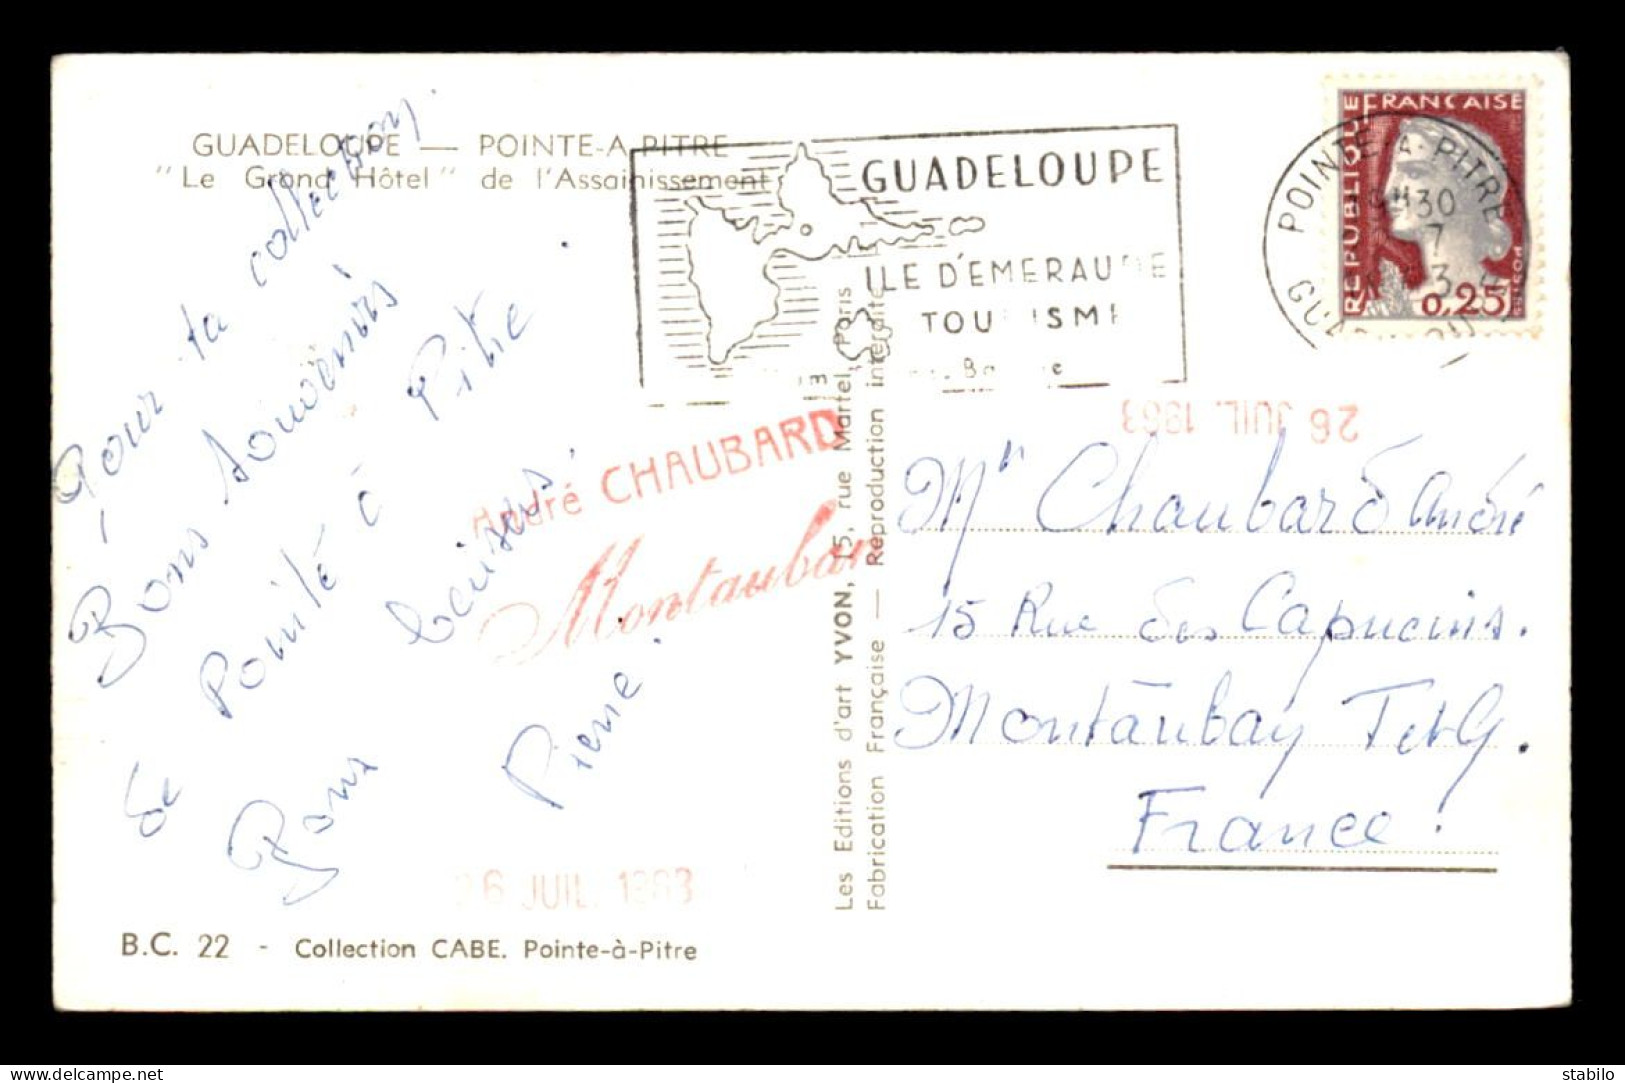 GUADELOUPE — POINTE-A-PITRE
"Le Grand Hôtel" de l'Assainissement
Pour ta collection.
Bons souvenirs
de Pointe à Pitre.
Bons baisers.
Pierre.
André CHAUBARD
Montauban
26 JUIL. 1963
B.C. 22 - Collection CABE. Pointe-à-Pitre
Les Editions d'art YVON, 15, rue Martel, Paris
Fabrication Française — Reproduction interdite
GUADELOUPE
ILE D'EMERAUDE
TOURISME
POINTE-A-PITRE
REPUBLIQUE FRANÇAISE
0,25
POSTES
26 JUIL. 1963
Mr Chaubard André
15 Rue des Capucins.
Montauban T et G.
France.
delcampe.net
stabilo